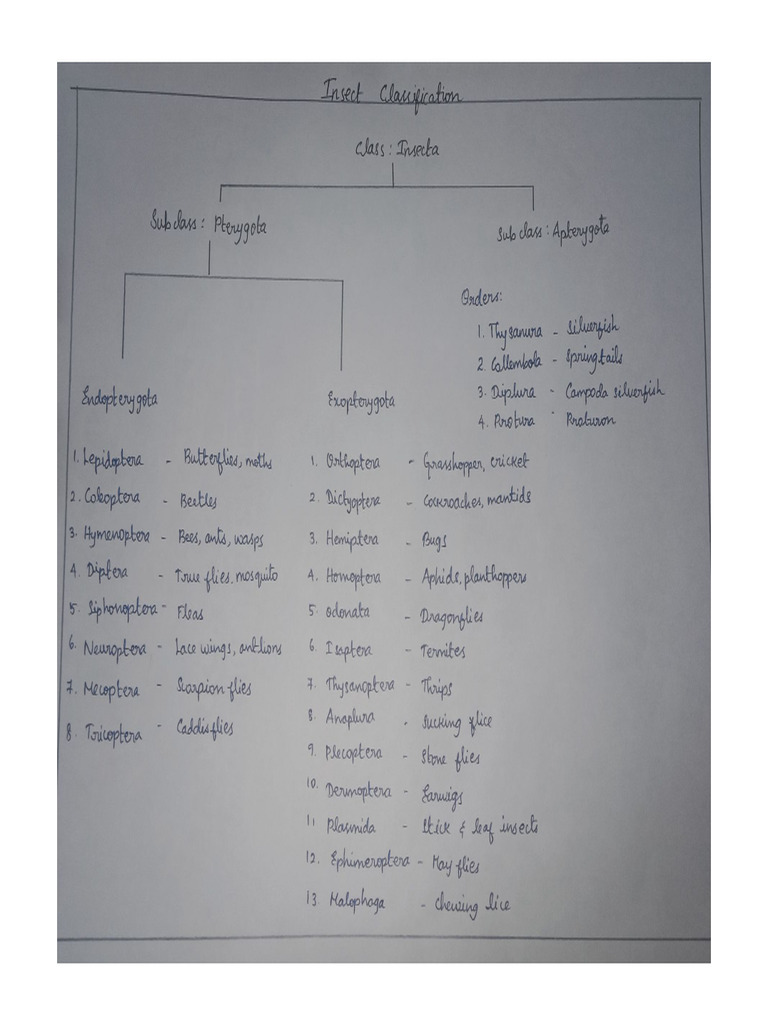 Insect Classification
Class: Insecta
Subclass: Pterygota
Subclass: Apterygota
Orders:
1. Thysanura - Silverfish
2. Collembola - Springtails
3. Diplura - Campoda silverfish
4. Protura - Proturon
Endopterygota
1. Lepidoptera - Butterflies, moths
2. Coleoptera - Beetles
3. Hymenoptera - Bees, ants, wasps
4. Diptera - True flies, mosquito
5. Siphonoptera - Fleas
6. Neuroptera - Lace wings, antlions
7. Mecoptera - Scorpion flies
8. Tricoptera - Caddisflies
Exopterygota
1. Orthoptera - Grasshopper, cricket
2. Dictyoptera - Cockroaches, mantids
3. Hemiptera - Bugs
4. Homoptera - Aphids, planthoppers
5. Odonata - Dragonflies
6. Isoptera - Termites
7. Thysanoptera - Thrips
8. Anaplura - Sucking flice
9. Plecoptera - Stone flies
10. Dermoptera - Earwigs
11. Plasmida - Stick & leaf insects
12. Ephimeroptera - May flies
13. Malophaga - Chewing lice